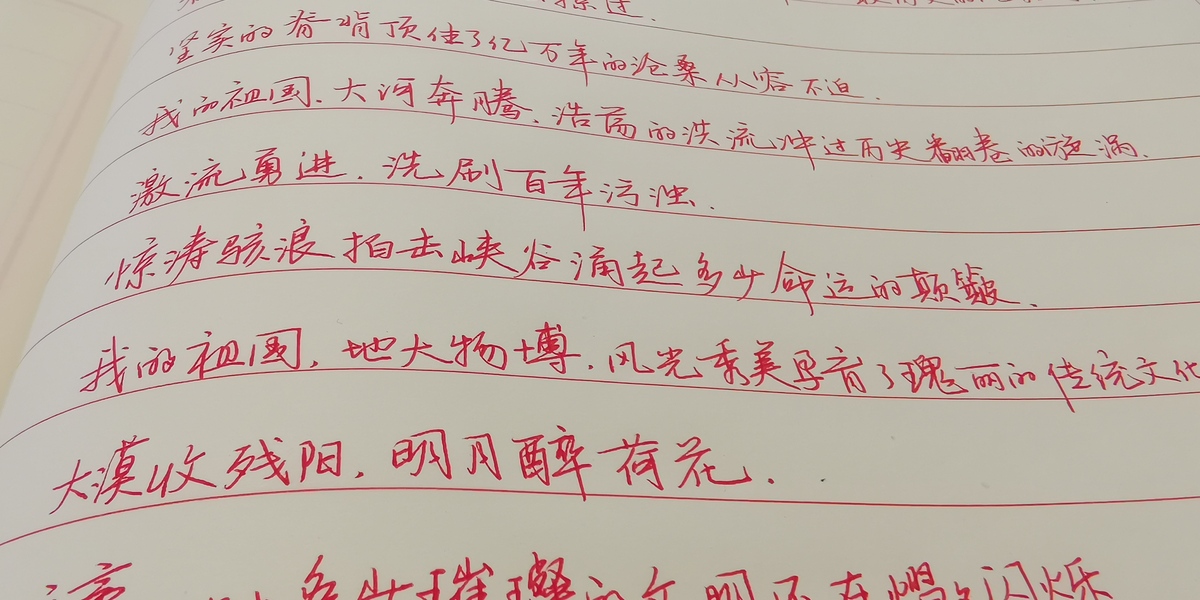 坚实的脊背顶住了亿万年的沧桑从容不迫.
我的祖国.大河奔腾.浩荡的洪流冲过历史翻卷的漩涡.
激流勇进.洗刷百年污浊.
惊涛骇浪拍击峡谷涌起多少命运的颠簸.
我的祖国.地大物博.风光秀美孕育了瑰丽的传统文化
大漠收残阳.明月醉荷花.
多少璀璨的文明还在熠熠闪烁